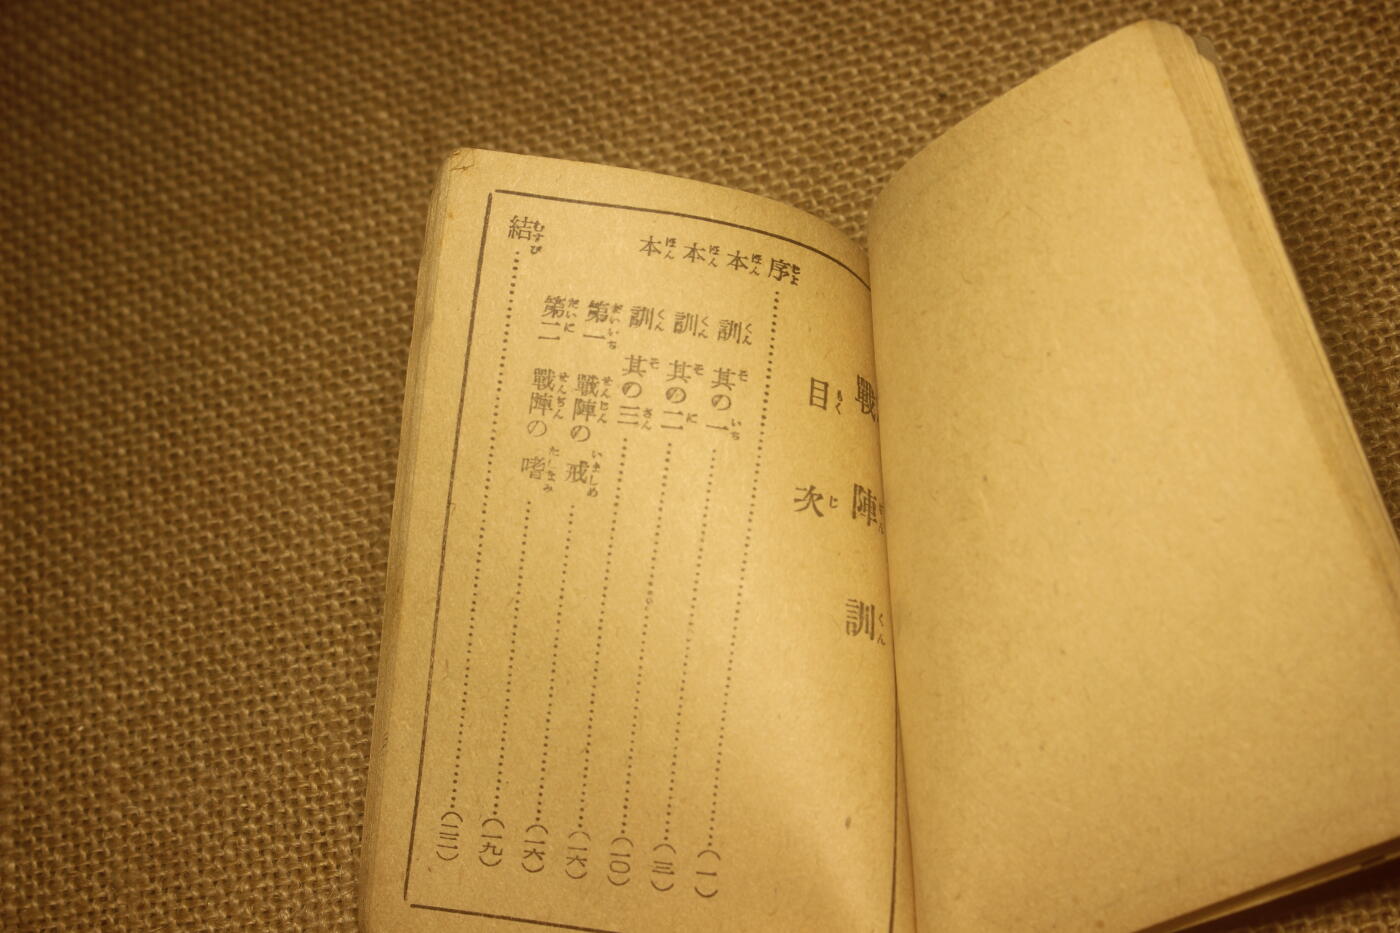 戰陣訓
目次
序……(一)
本訓 其の一……(三)
本訓 其の二……(一〇)
本訓 其の三……(一六)
第一 戰陣の戒……(一六)
第二 戰陣の嗜……(一九)
結……(二二)